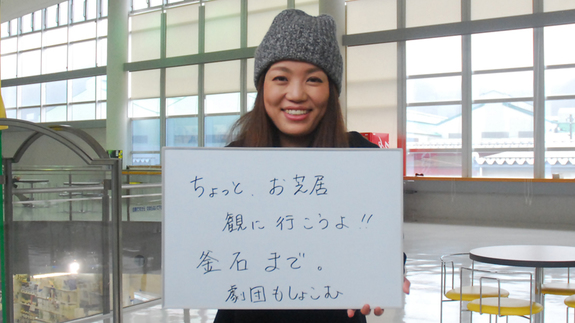 ちょっと、お芝居
観に行こうよ!!
釜石まで。
劇団もしょこむ